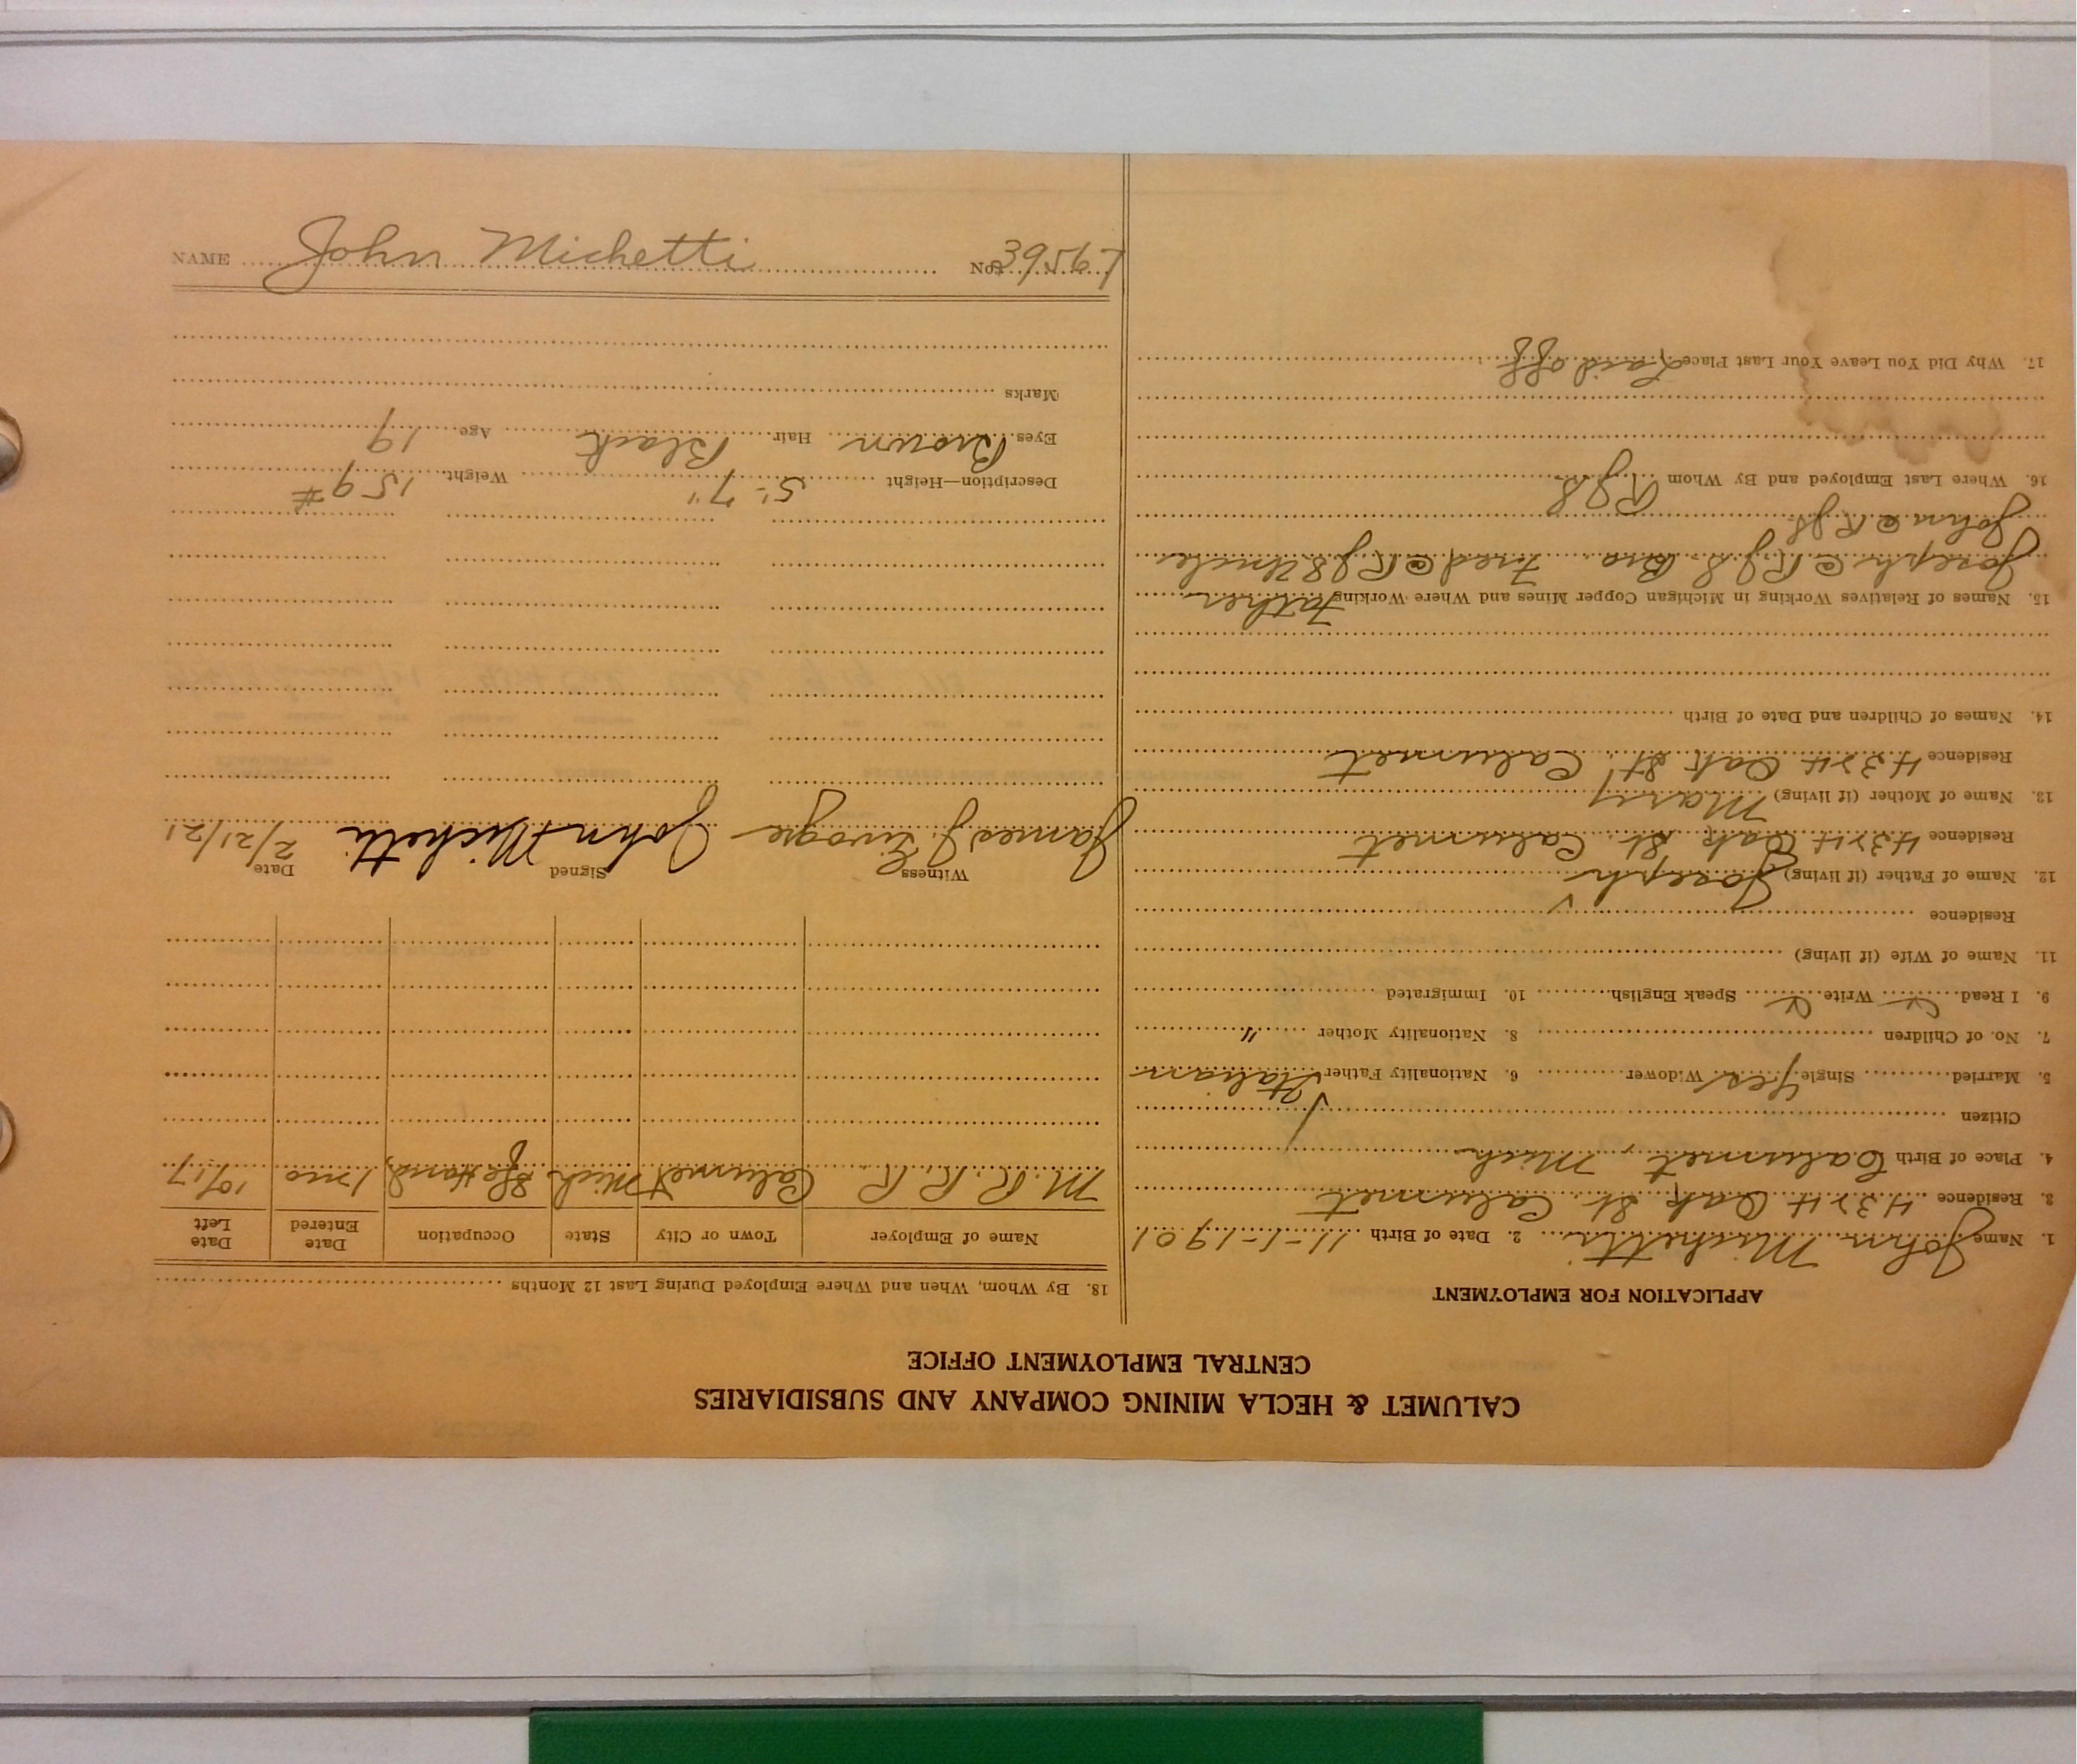 CALUMET & HECLA MINING COMPANY AND SUBSIDIARIES
CENTRAL EMPLOYMENT OFFICE
APPLICATION FOR EMPLOYMENT
1. Name John Michetti 2. Date of Birth 11-1-1901
3. Residence 4324 Oak St. Calumet
4. Place of Birth Calumet, Mich
Citizen
5. Married Single Yes Widower 6. Nationality Father Italian
7. No. of Children 8. Nationality Mother "
9. I Read Write Speak English 10. Immigrated
11. Name of Wife (if living)
Residence
12. Name of Father (if living) Joseph
Residence 4324 Oak St. Calumet
13. Name of Mother (if living) Mary
Residence 4324 Oak St. Calumet
14. Names of Children and Date of Birth
15. Names of Relatives Working in Michigan Copper Mines and Where Working Father
Joseph @ RJS. Bro. Fred @ RJS Uncle
John @ RJS
16. Where Last Employed and By Whom RJS
17. Why Did You Leave Your Last Place Laid off
18. By Whom, When and Where Employed During Last 12 Months
Name of Employer Town or City State Occupation Date Entered Date Left
M. R. R. R Calumet Mich Hand 1 mo 10/17
Witness Signed Date
James J. John Michetti 2/21/21
Description—Height 5'-7" Weight 159#
Eyes Brown Hair Black Age 19
Marks
NAME John Michetti No. 39567